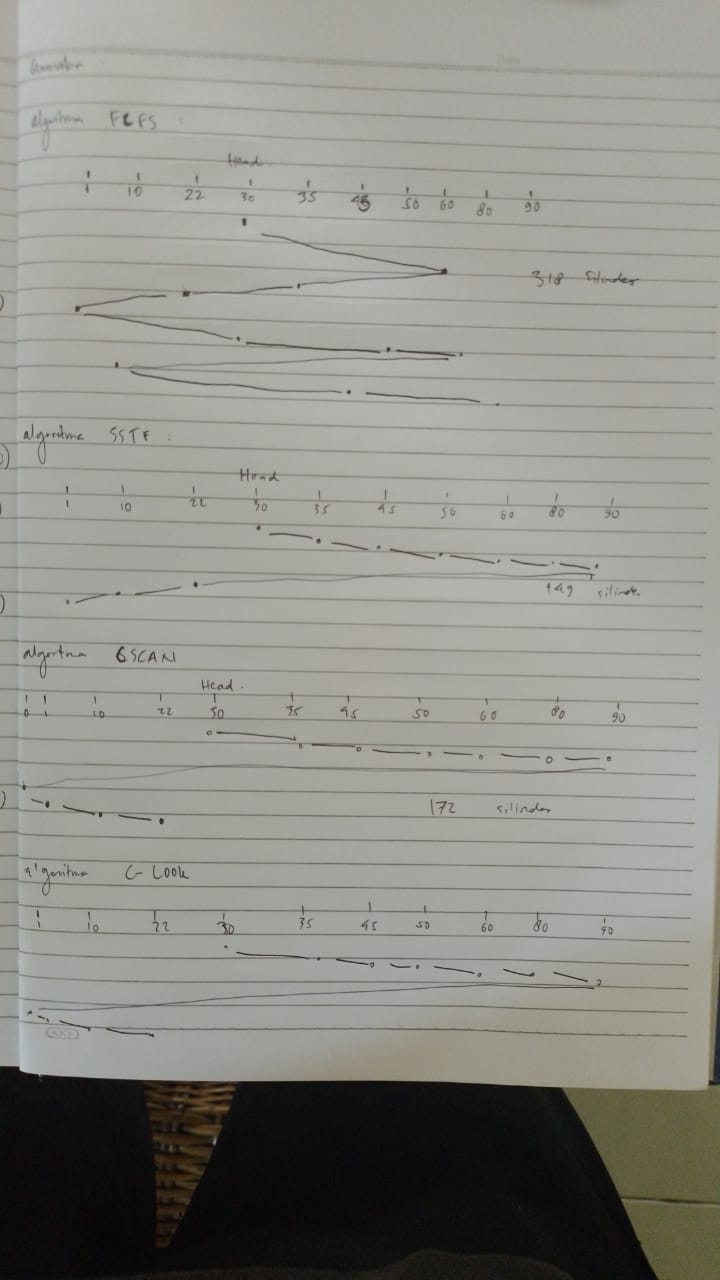 algoritma FCFS :
Head
1 10 22 30 35 45 50 60 80 90
318 silinder
algoritma SSTF :
Head
1 10 22 30 35 45 50 60 80 90
149 silinder
algoritma CSCAN
Head.
0 1 10 22 30 35 45 50 60 80 90
172 silinder
algoritma C-LOOK
1 10 22 30 35 45 50 60 80 90
KKY